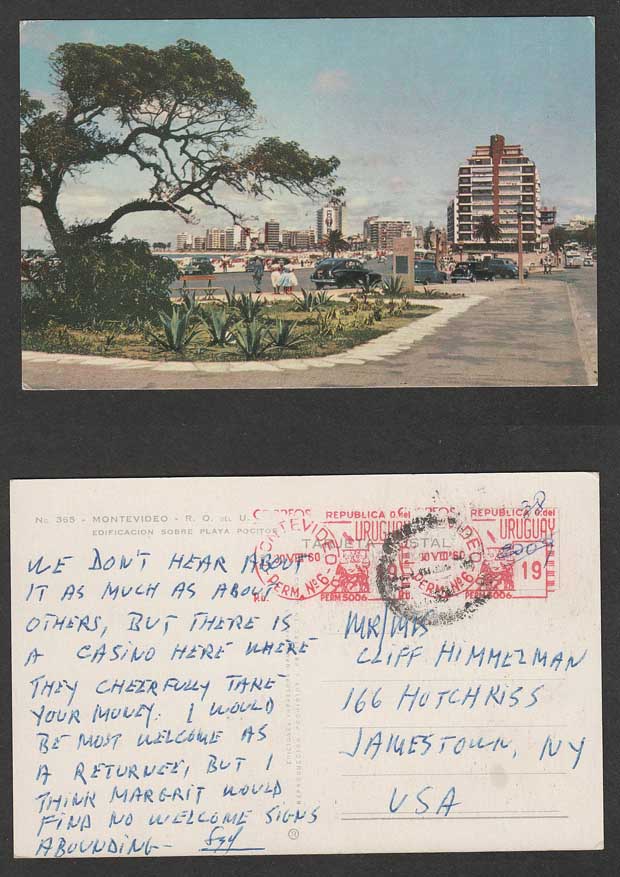 No. 365 - MONTEVIDEO - R. O. DEL U.
EDIFICACION SOBRE PLAYA POCITOS
TARJETA POSTAL
CORREOS
REPUBLICA O. del
URUGUAY
MONTEVIDEO
30 VIII 60
PERM. Nº 6
PERM 5006
REPUBLICA O. del
URUGUAY
30 VIII 60
PERM. Nº 6
19
PERM 5006
WE DON'T HEAR ABOUT
IT AS MUCH AS ABOUT
OTHERS, BUT THERE IS
A CASINO HERE WHERE
THEY CHEERFULLY TAKE
YOUR MONEY. I WOULD
BE MOST WELCOME AS
A RETURNEE, BUT I
THINK MARGRIT WOULD
FIND NO WELCOME SIGNS
ABOUNDING-
MR/MRS
CLIFF HIMMELMAN
166 HOTCHKISS
JAMESTOWN, NY
USA